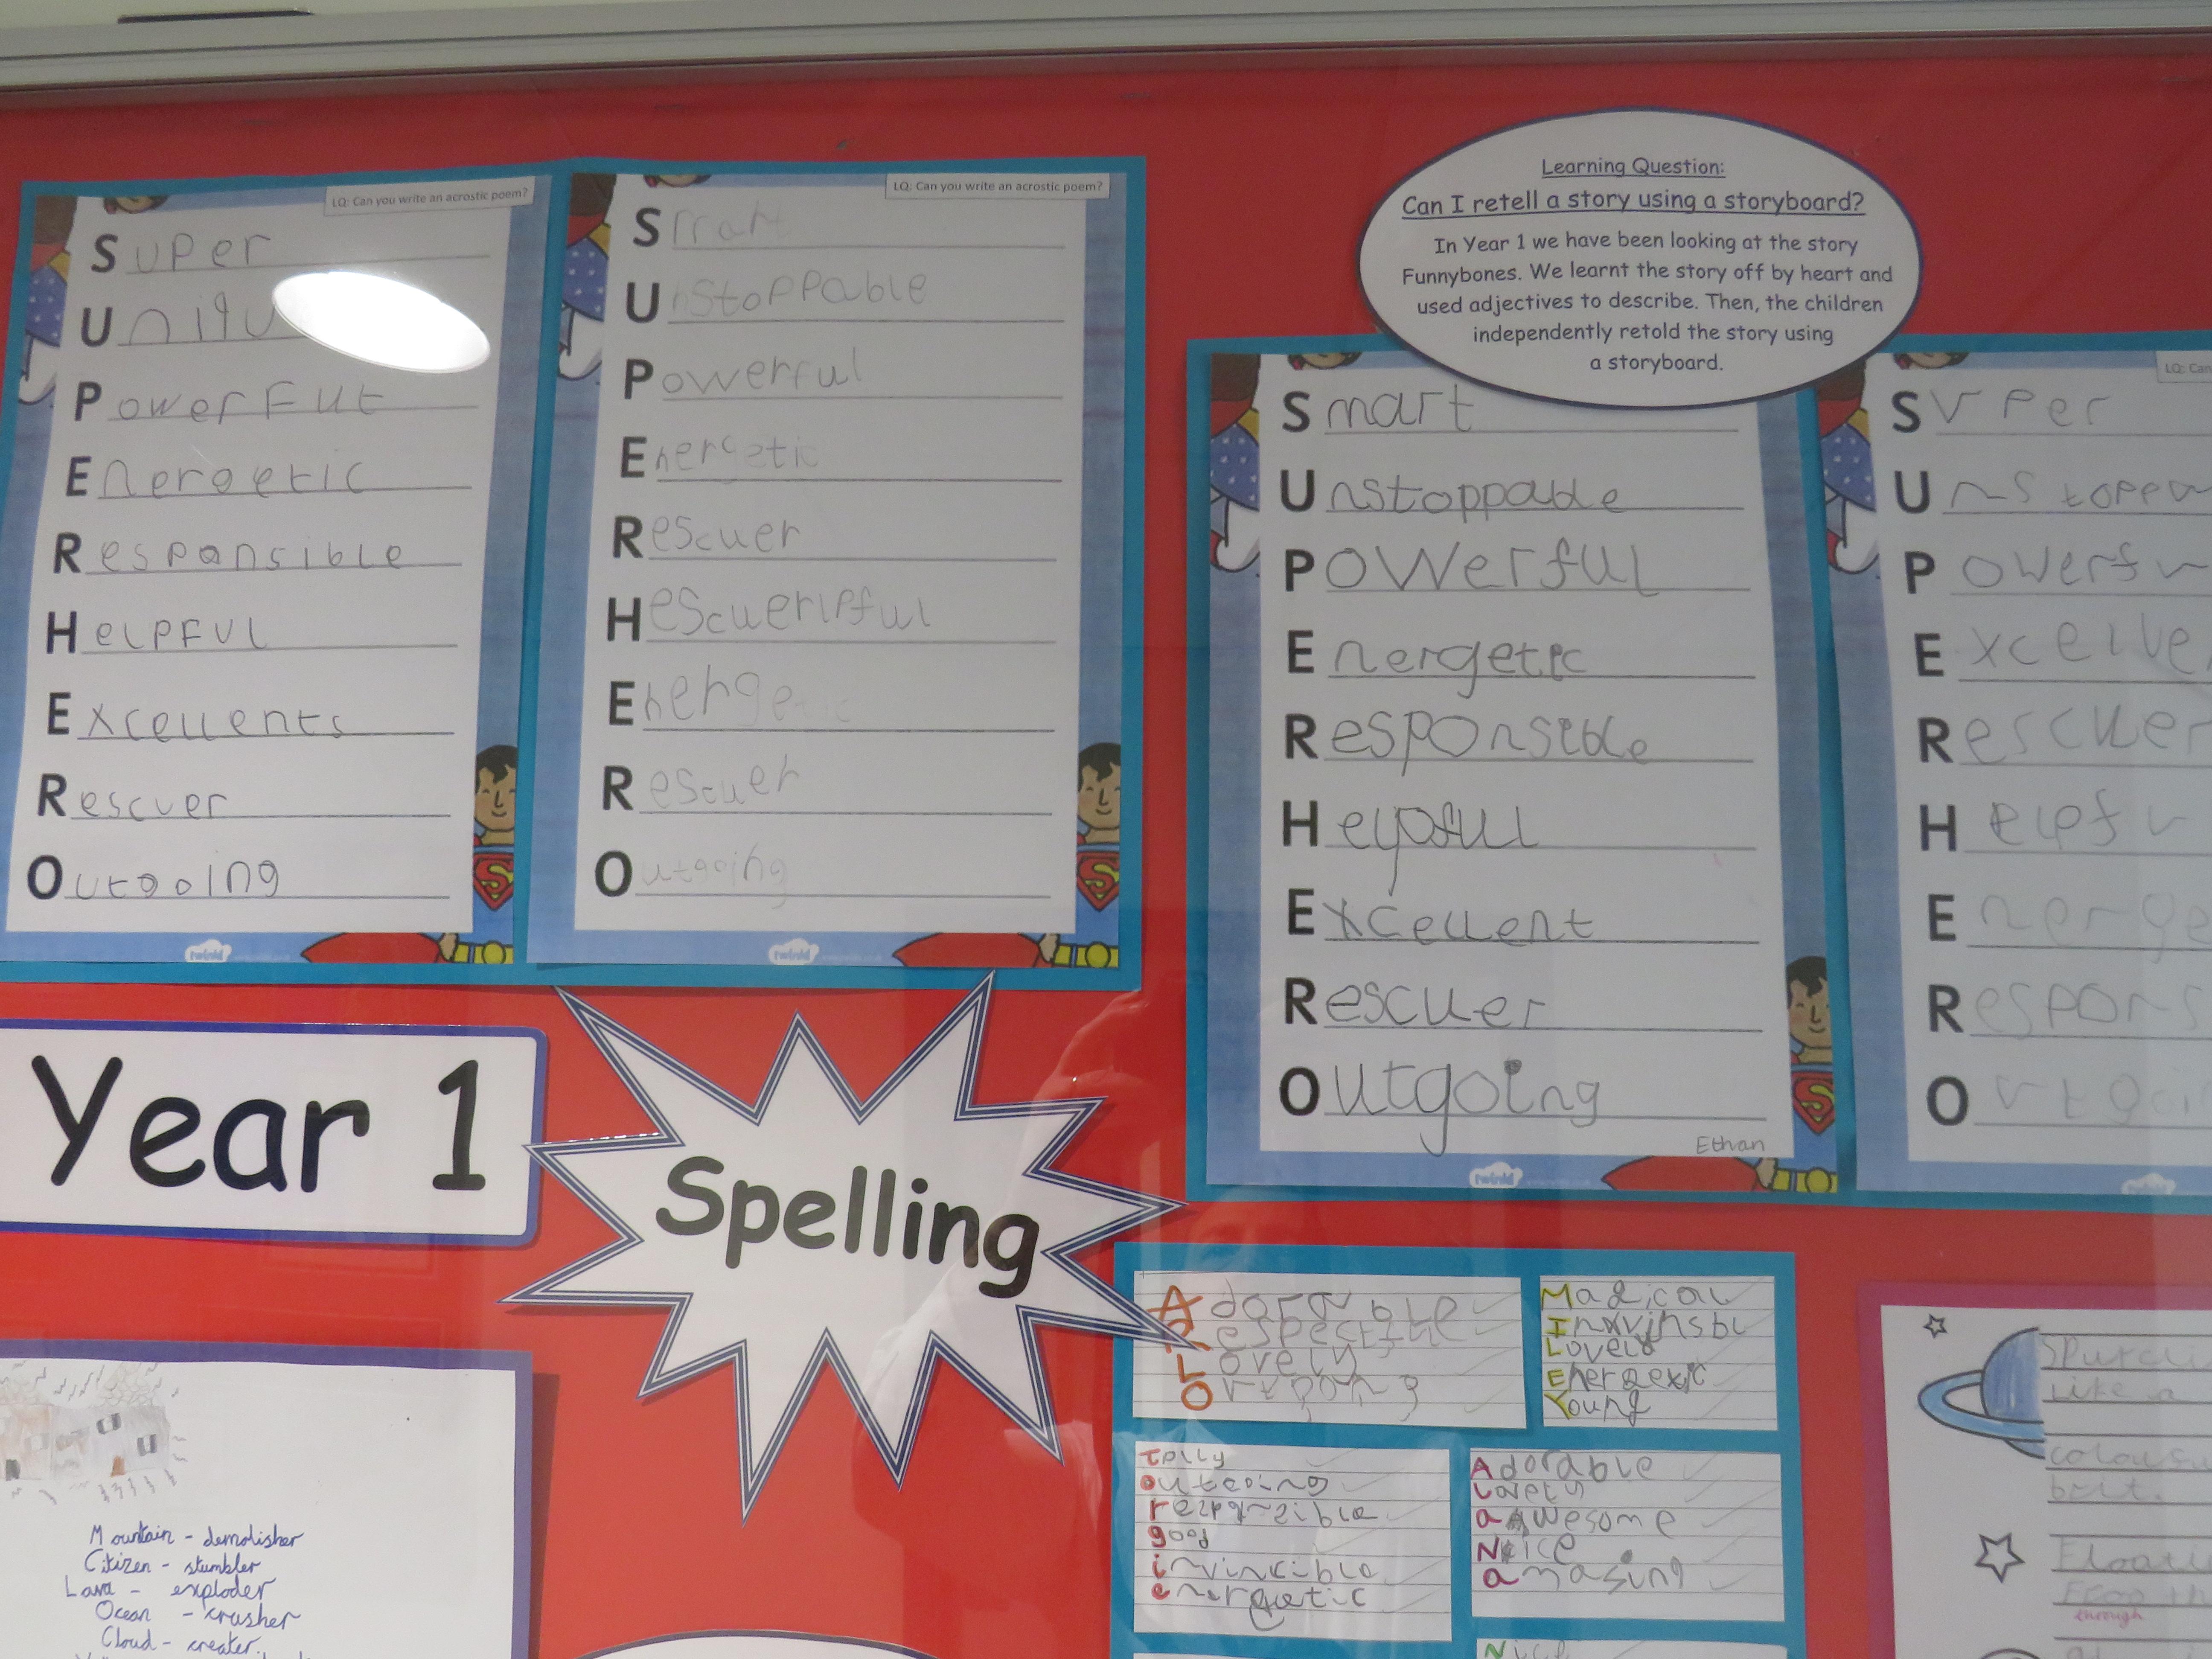 LQ: Can you write an acrostic poem?
Super
Powerful
Energetic
Responsible
Helpful
Excellents
Rescuer
Outgoing
twinkl
LQ: Can you write an acrostic poem?
Smart
Unstoppable
Powerful
Energetic
Rescuer
Hescuerlpful
Energetic
Rescuer
Outgoing
twinkl
Learning Question:
Can I retell a story using a storyboard?
In Year 1 we have been looking at the story
Funnybones. We learnt the story off by heart and
used adjectives to describe. Then, the children
independently retold the story using
a storyboard.
Smart
Unstoppable
Powerful
Energetic
Responsible
Helpful
Excellent
Rescuer
Outgoing
Ethan
twinkl
LQ: Can
Super
Unstoppa
Powerfu
Rescuer
Helpfu
Energe
Respons
Outgoi
Year 1
Spelling
Adorable
Lovely
Magical
Lovely
Energetic
Young
outgoing
good
invinkible
energetic
Adorable
Lovely
aAwesome
Nice
amasing
Nice
Mountain - demolisher
Citizen - stumbler
Lava - exploder
Ocean - crusher
Cloud - creater.
like a
colours
belt.
through